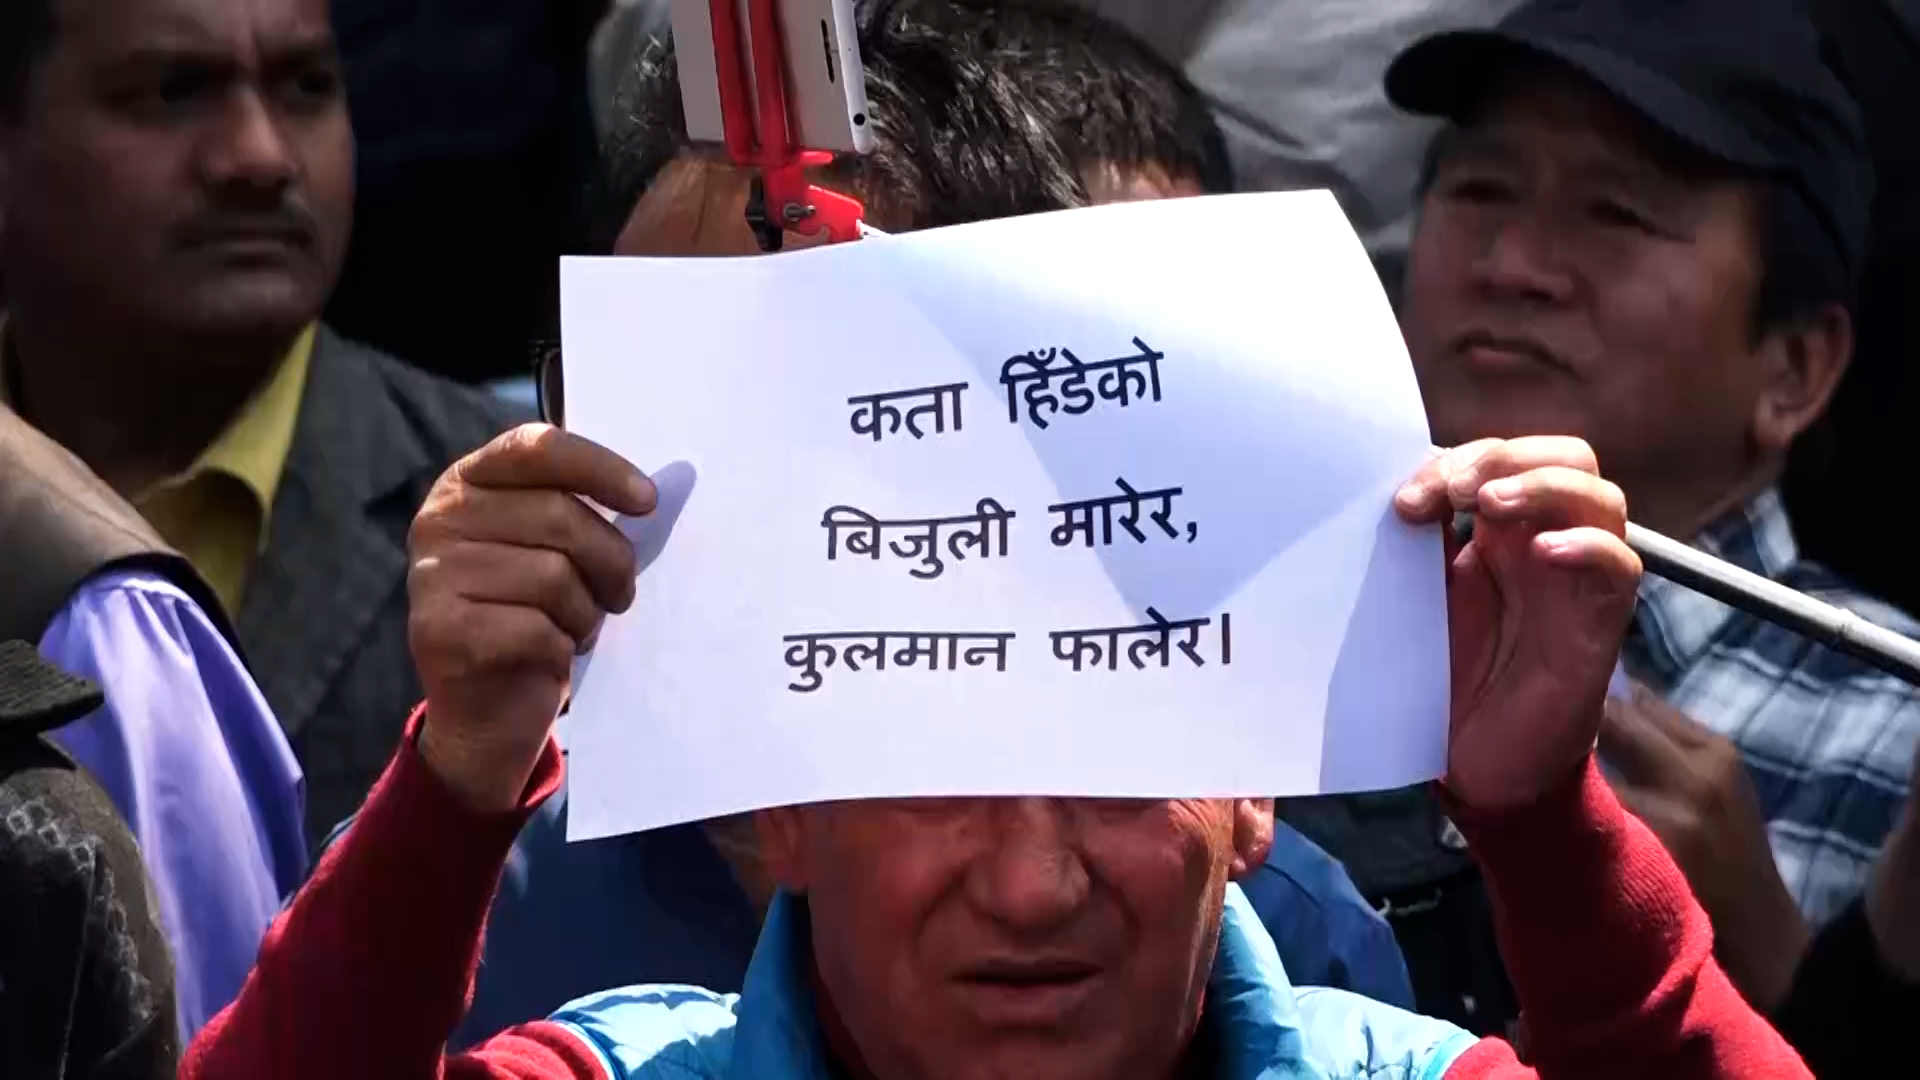 कता हिँडेको
बिजुली मारेर,
कुलमान फालेर।